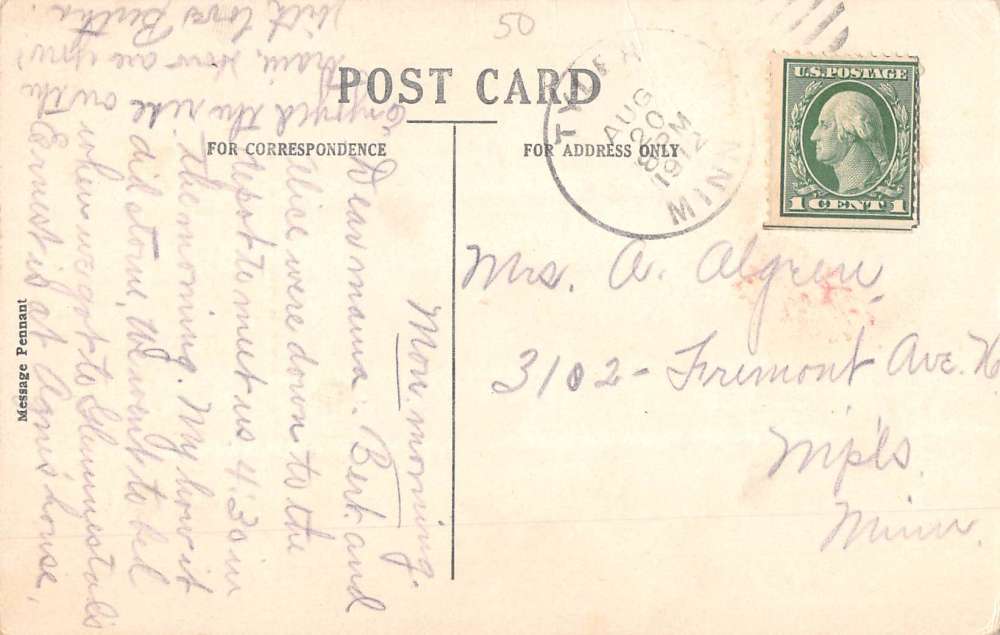 50
POST CARD
FOR CORRESPONDENCE
FOR ADDRESS ONLY
TYLER
AUG
20
PM
1912
MINN
U.S. POSTAGE
1 CENT 1
Mon morning.
Dear mama: Bert. and
Alice were down to the
depot to meet us 4:30 in
the morning. My how it
did storm, we went to bed
when we got to
Ernest is at Agnes' house.
Enjoyed the ride on the
train, How are you?
With love Bertha
Mrs. A. Algren,
3102 - Fremont Ave. N
Mpls.
Minn.
Message Pennant